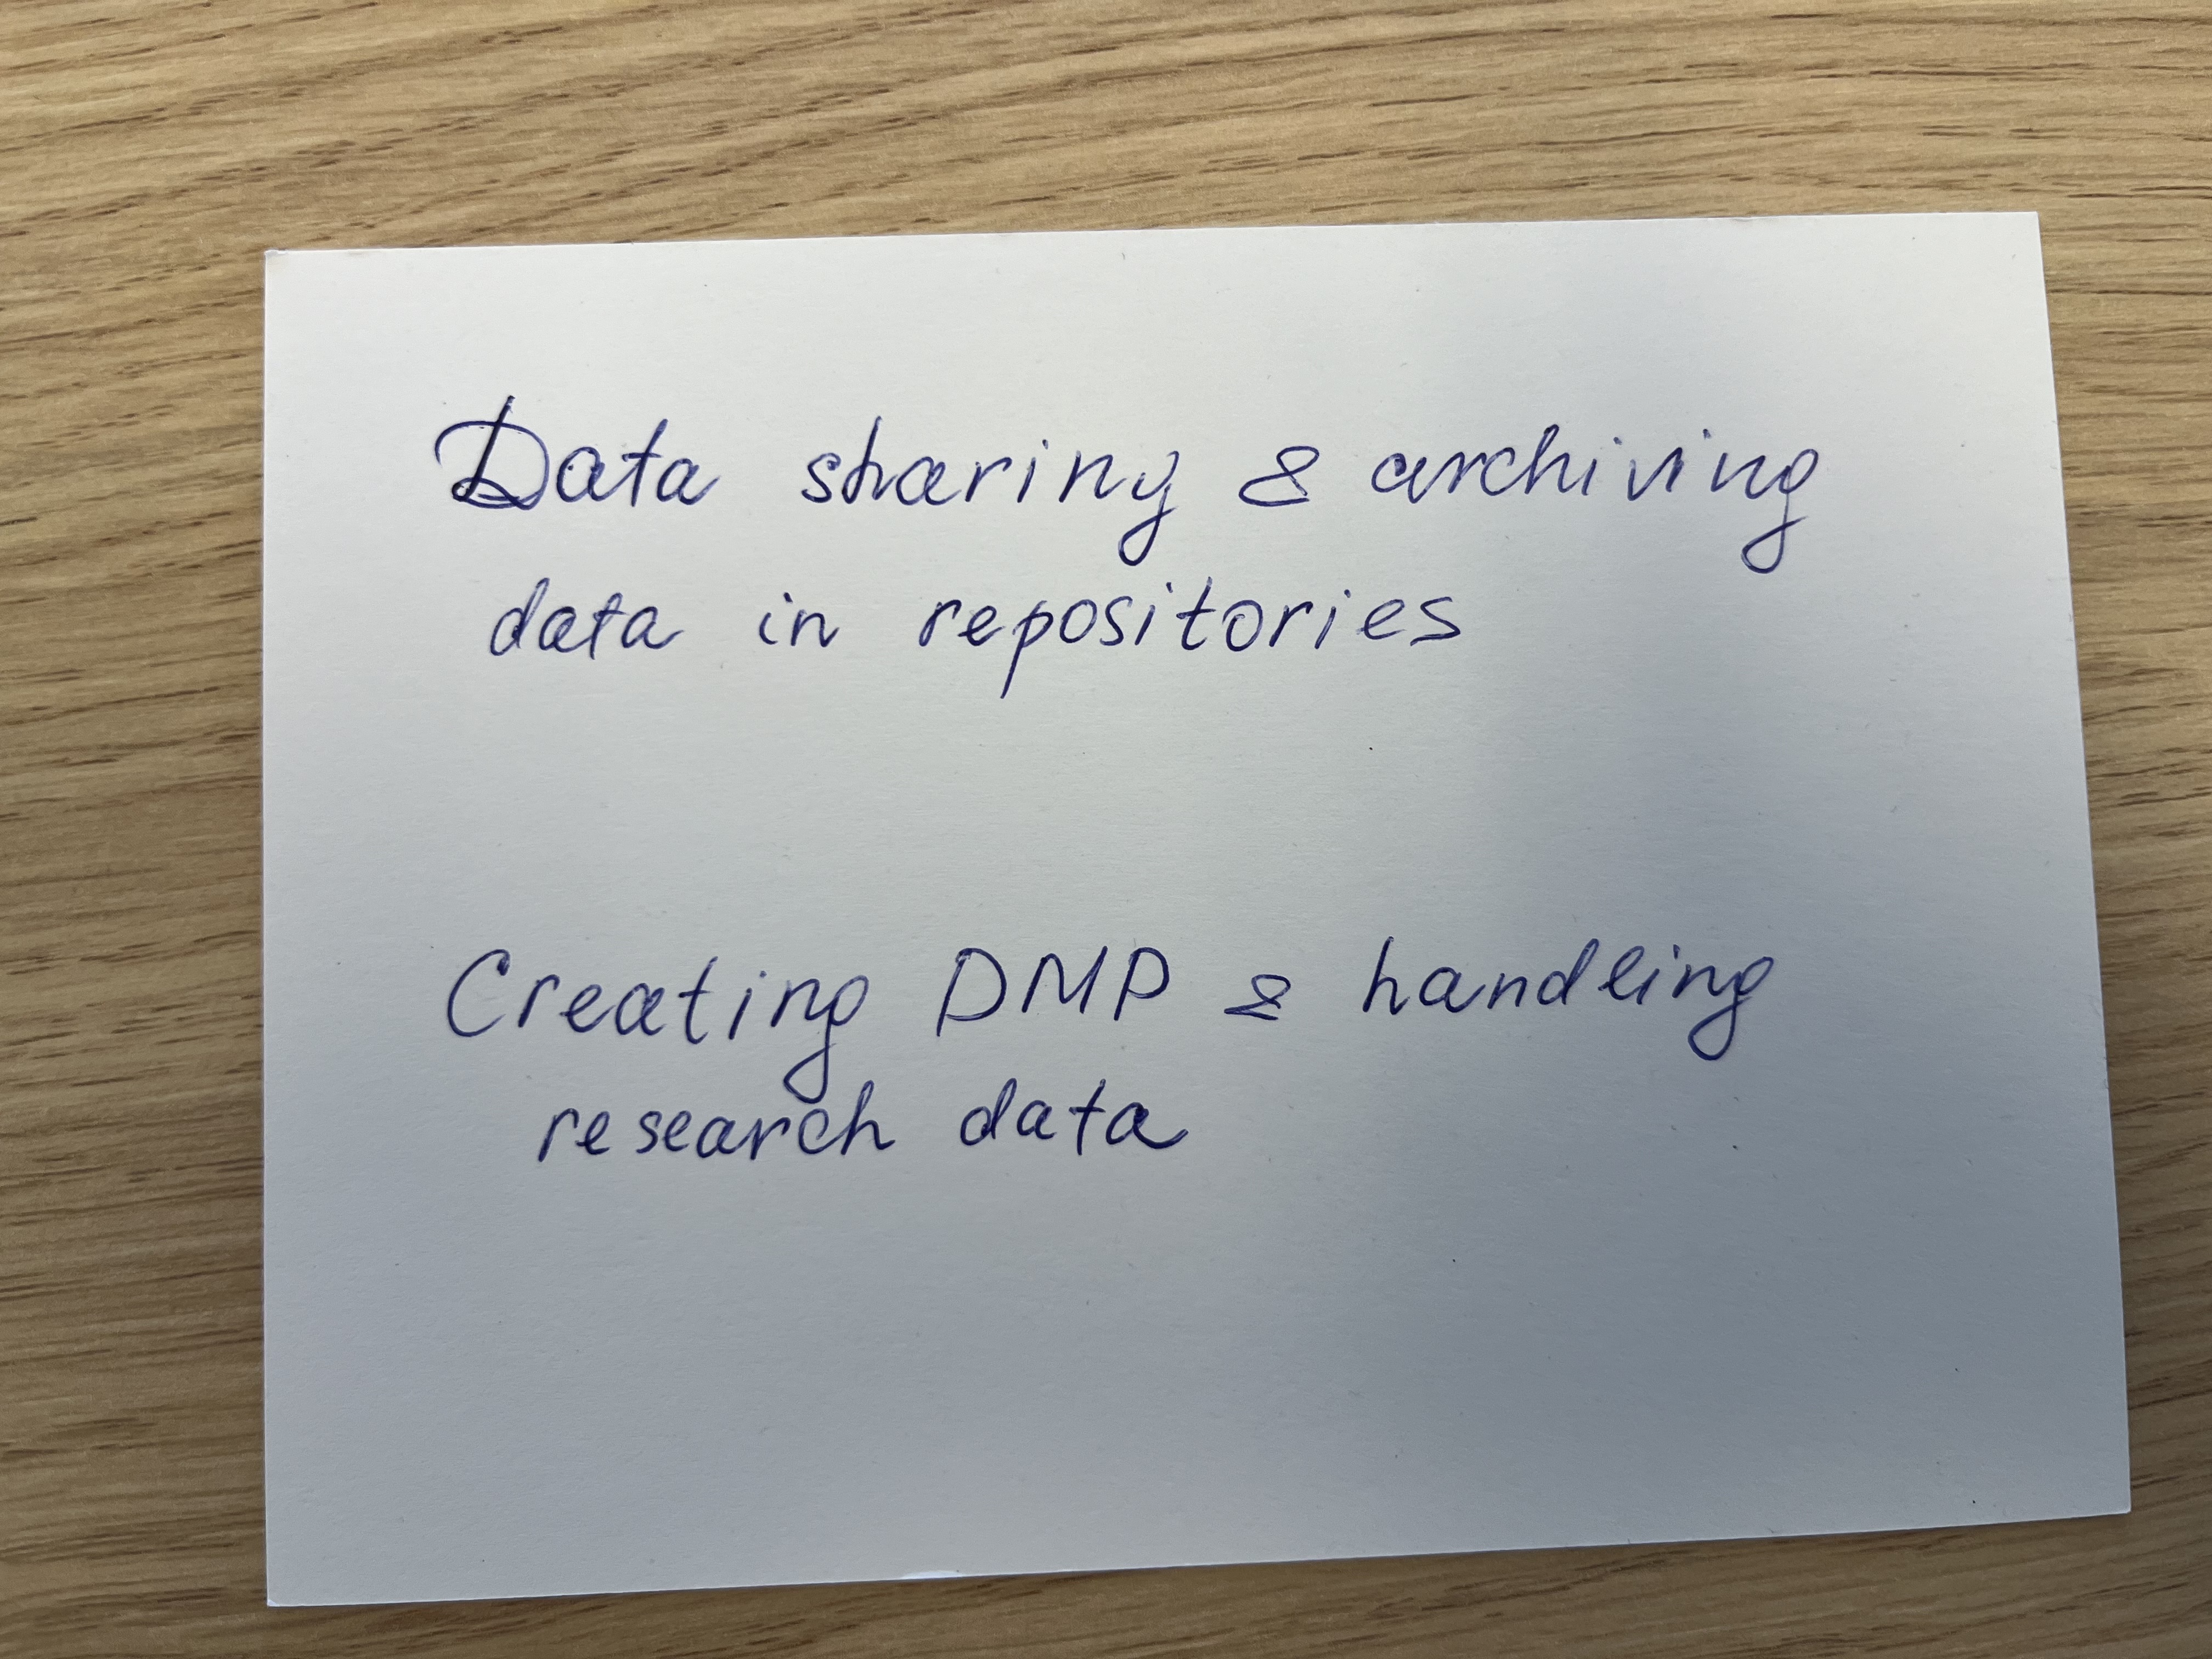 Data sharing & archiving
data in repositories
Creating DMP & handling
research data